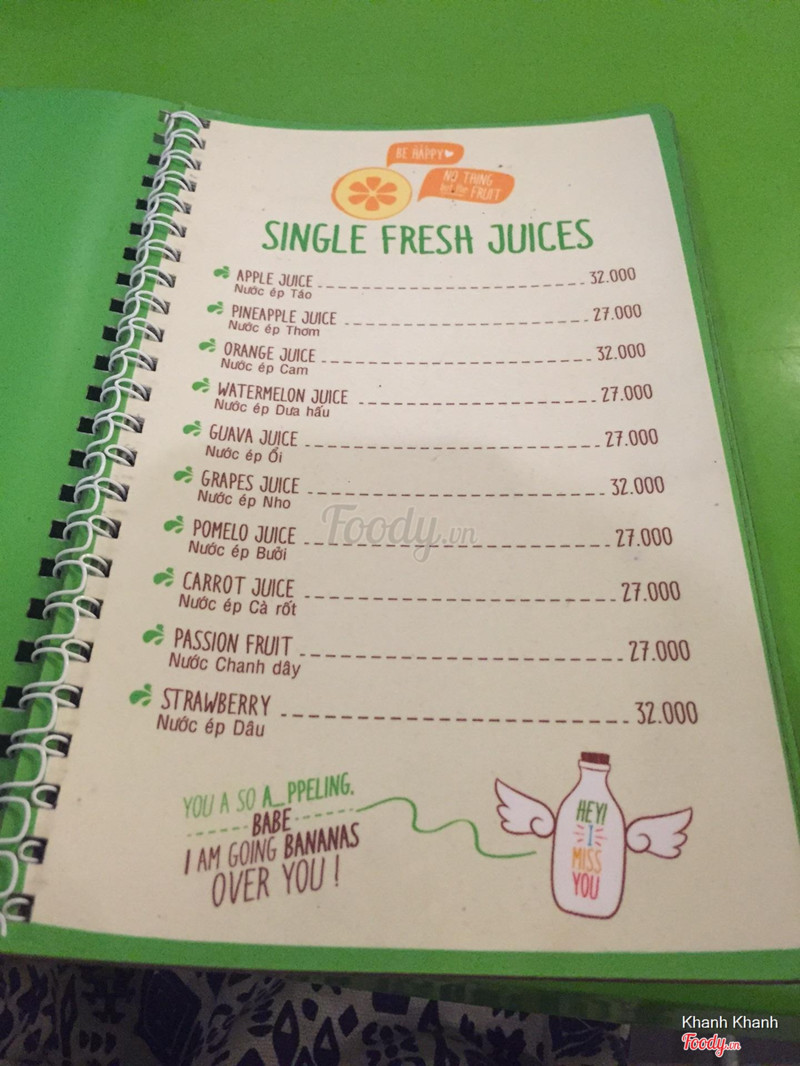 BE HAPPY
NO THING
but the FRUIT
SINGLE FRESH JUICES
APPLE JUICE 32.000
Nước ép Táo
PINEAPPLE JUICE 27.000
Nước ép Thơm
ORANGE JUICE 32.000
Nước ép Cam
WATERMELON JUICE 27.000
Nước ép Dưa hấu
GUAVA JUICE 27.000
Nước ép Ổi
GRAPES JUICE 32.000
Nước ép Nho
POMELO JUICE 27.000
Nước ép Bưởi
CARROT JUICE 27.000
Nước ép Cà rốt
PASSION FRUIT 27.000
Nước Chanh dây
STRAWBERRY 32.000
Nước ép Dâu
YOU A SO A_PPELING.
BABE
I AM GOING BANANAS
OVER YOU !
HEY!
I
MISS
YOU
Foody.vn
Khanh Khanh
Foody.vn